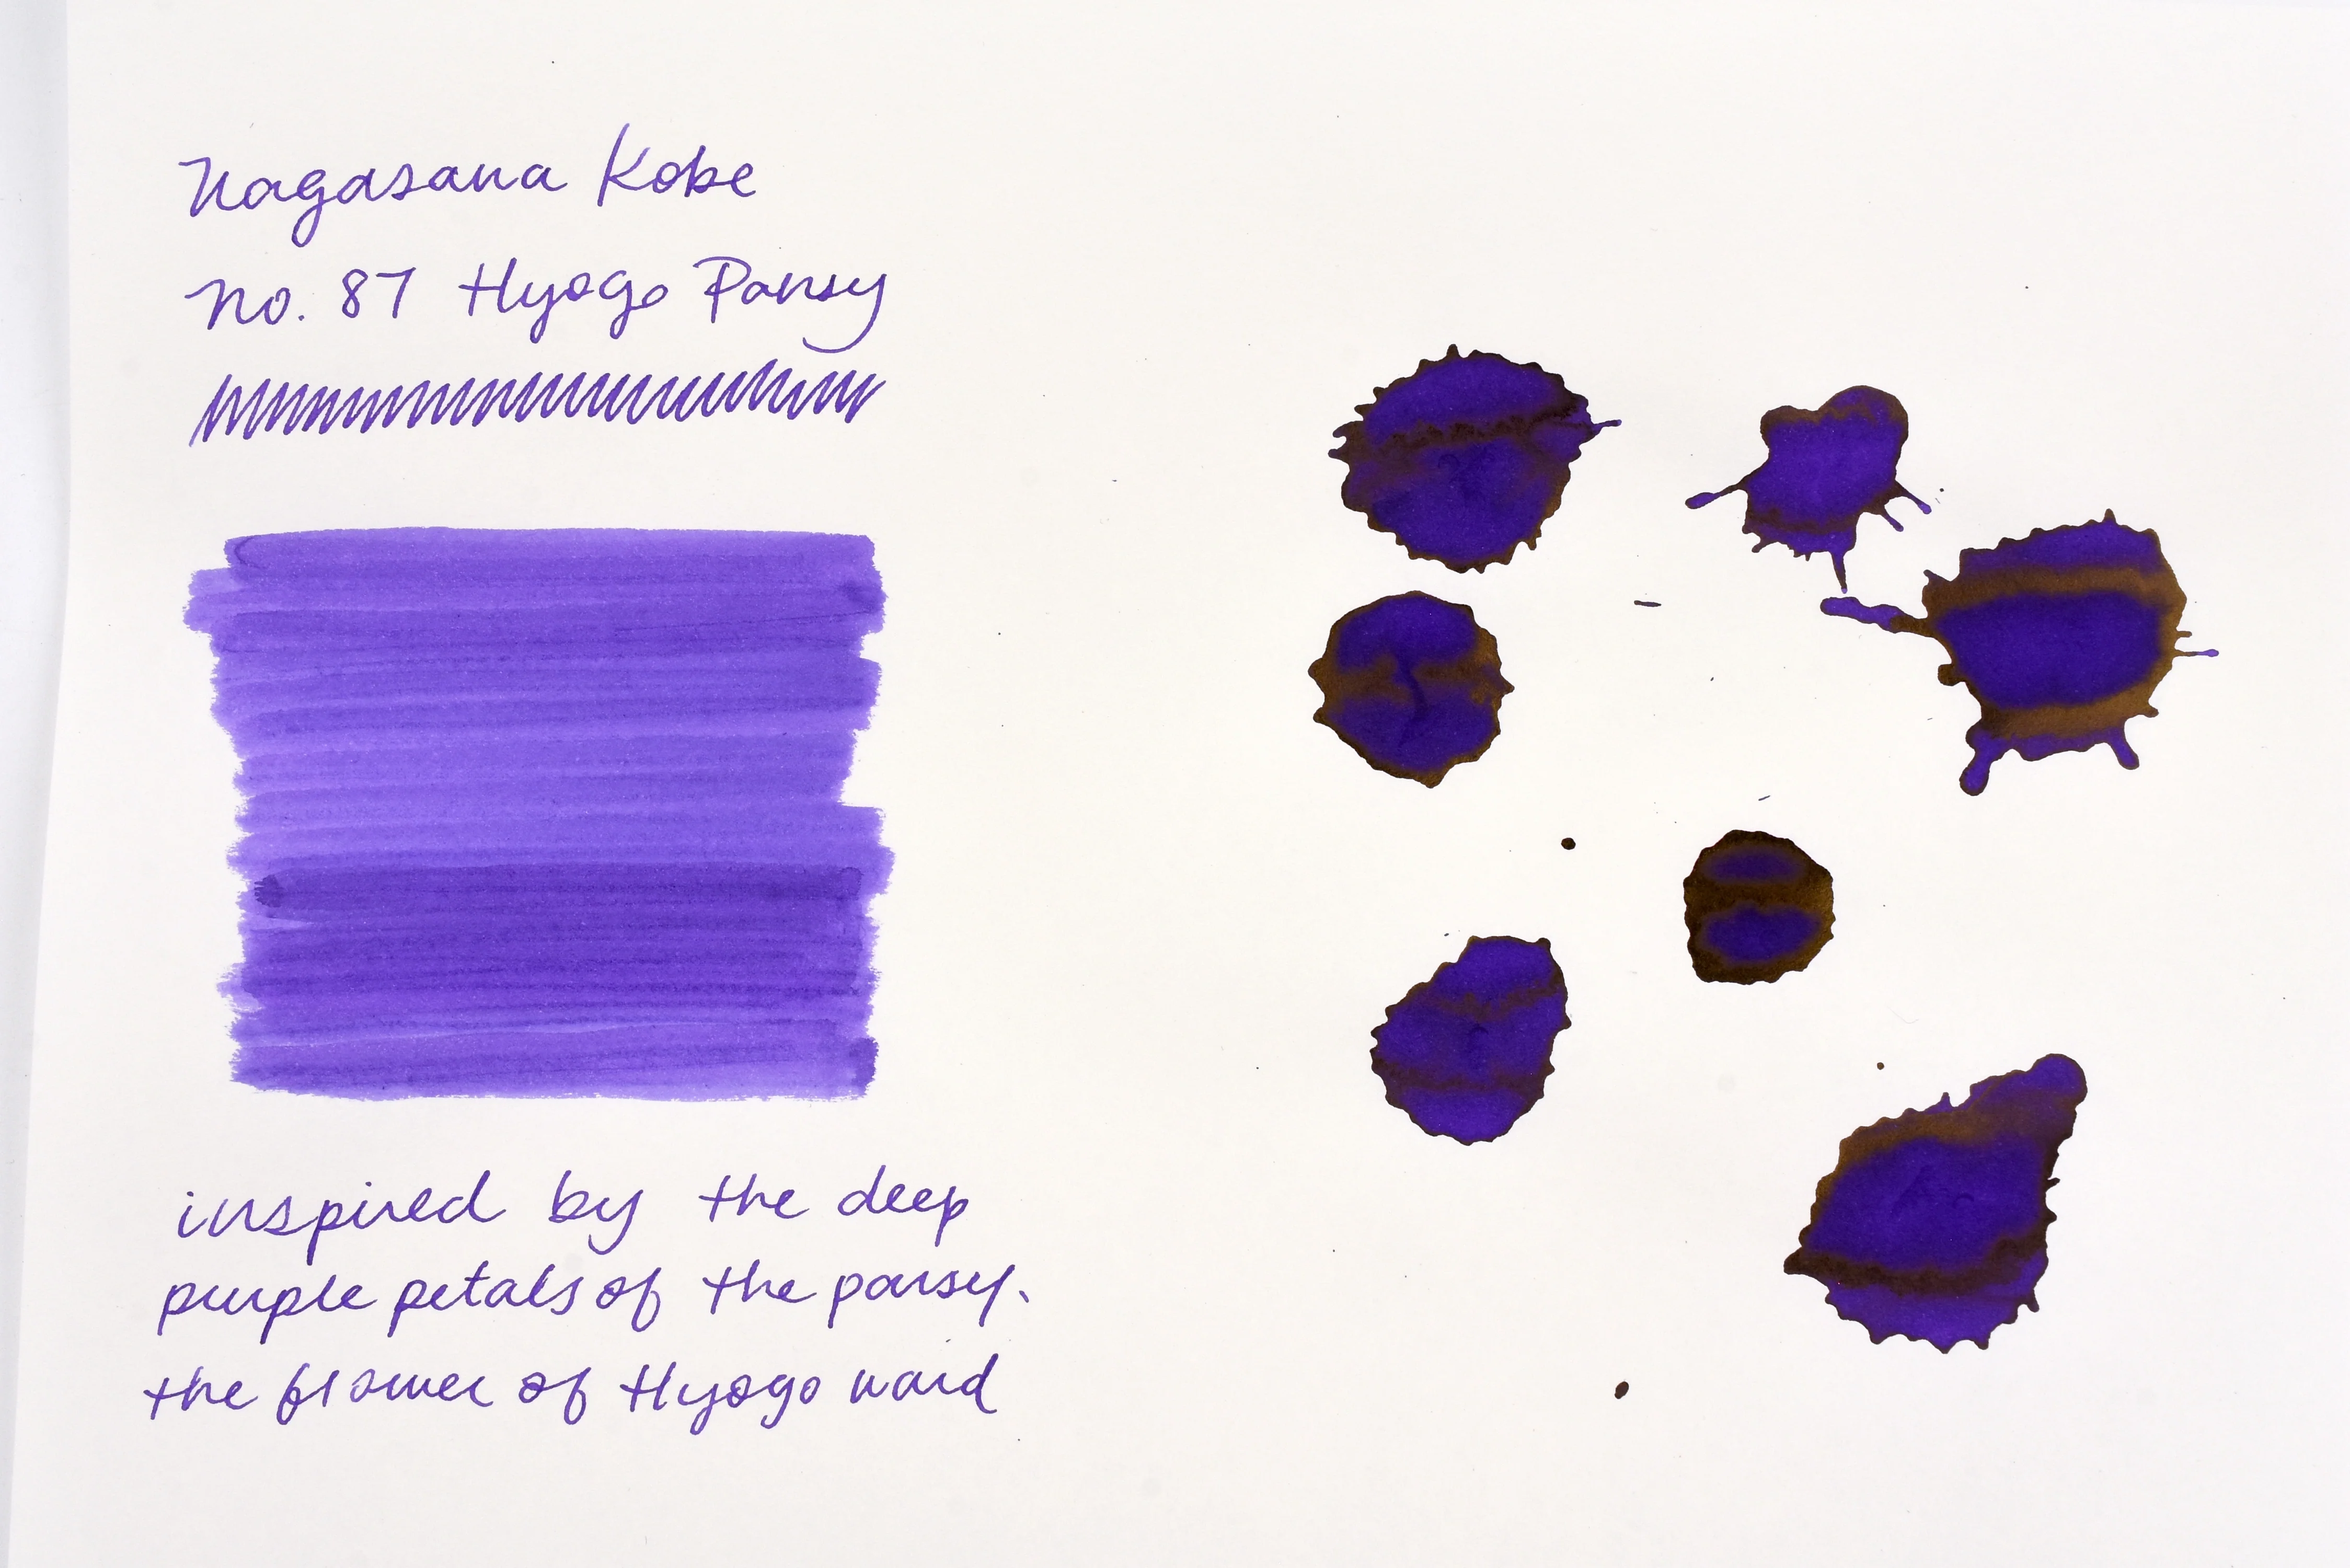 Nagasawa Kobe
No. 87 Hyogo Pansy
inspired by the deep
purple petals of the pansy.
the flower of Hyogo ward